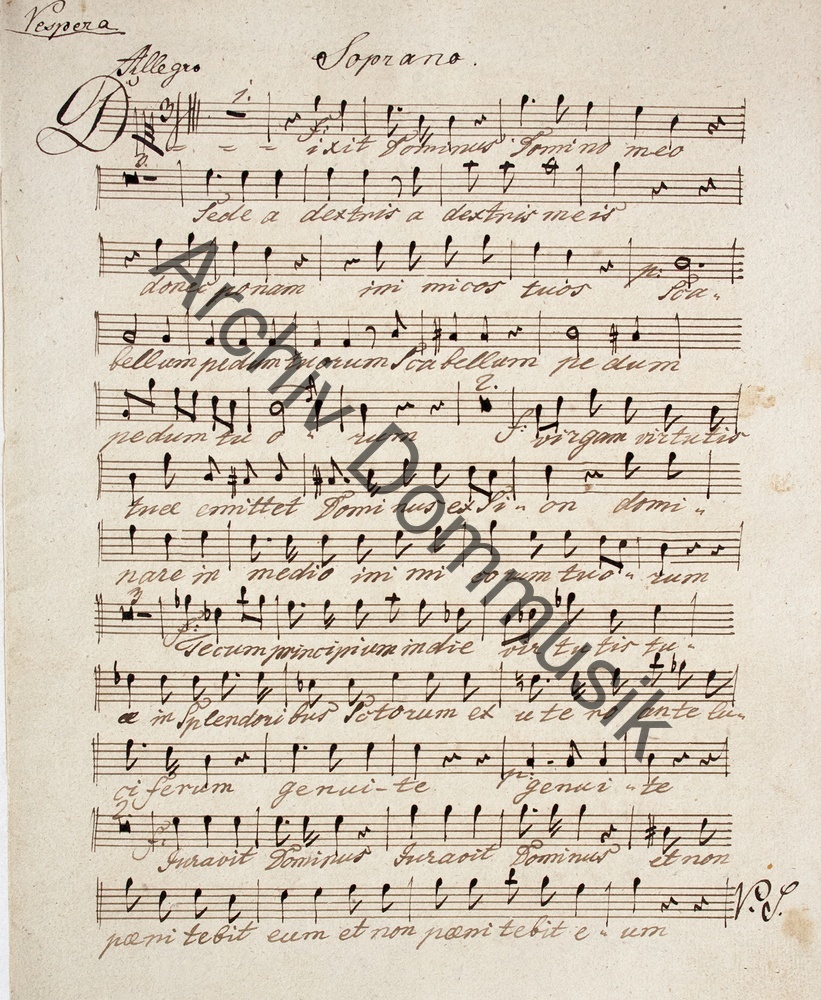 Vespera
Allegro
Soprano.
1.
D - - - f: ixit Dominus Domino meo
2.
Sede a dextris a dextris meis
donec ponam ini micos tuos p: Sca-
bellum pedum tuorum Scabellum pe dum
2.
pedum tu o - rum f: virgam virtutis
tuae emittet Dominus ex Si - on domi -
nare in medio ini mi corum tuo - rum
3
f: Tecum principium in die vir tu tis tu -
ae in Splendoribus Sctorum ex u te ro ante lu -
ci ferum genui - te p: genui - te
2.
f: Juravit Dominus Juravit Dominus et non
paeni tebit eum et non paeni tebit e - um
V. S.
Archiv Dommusik